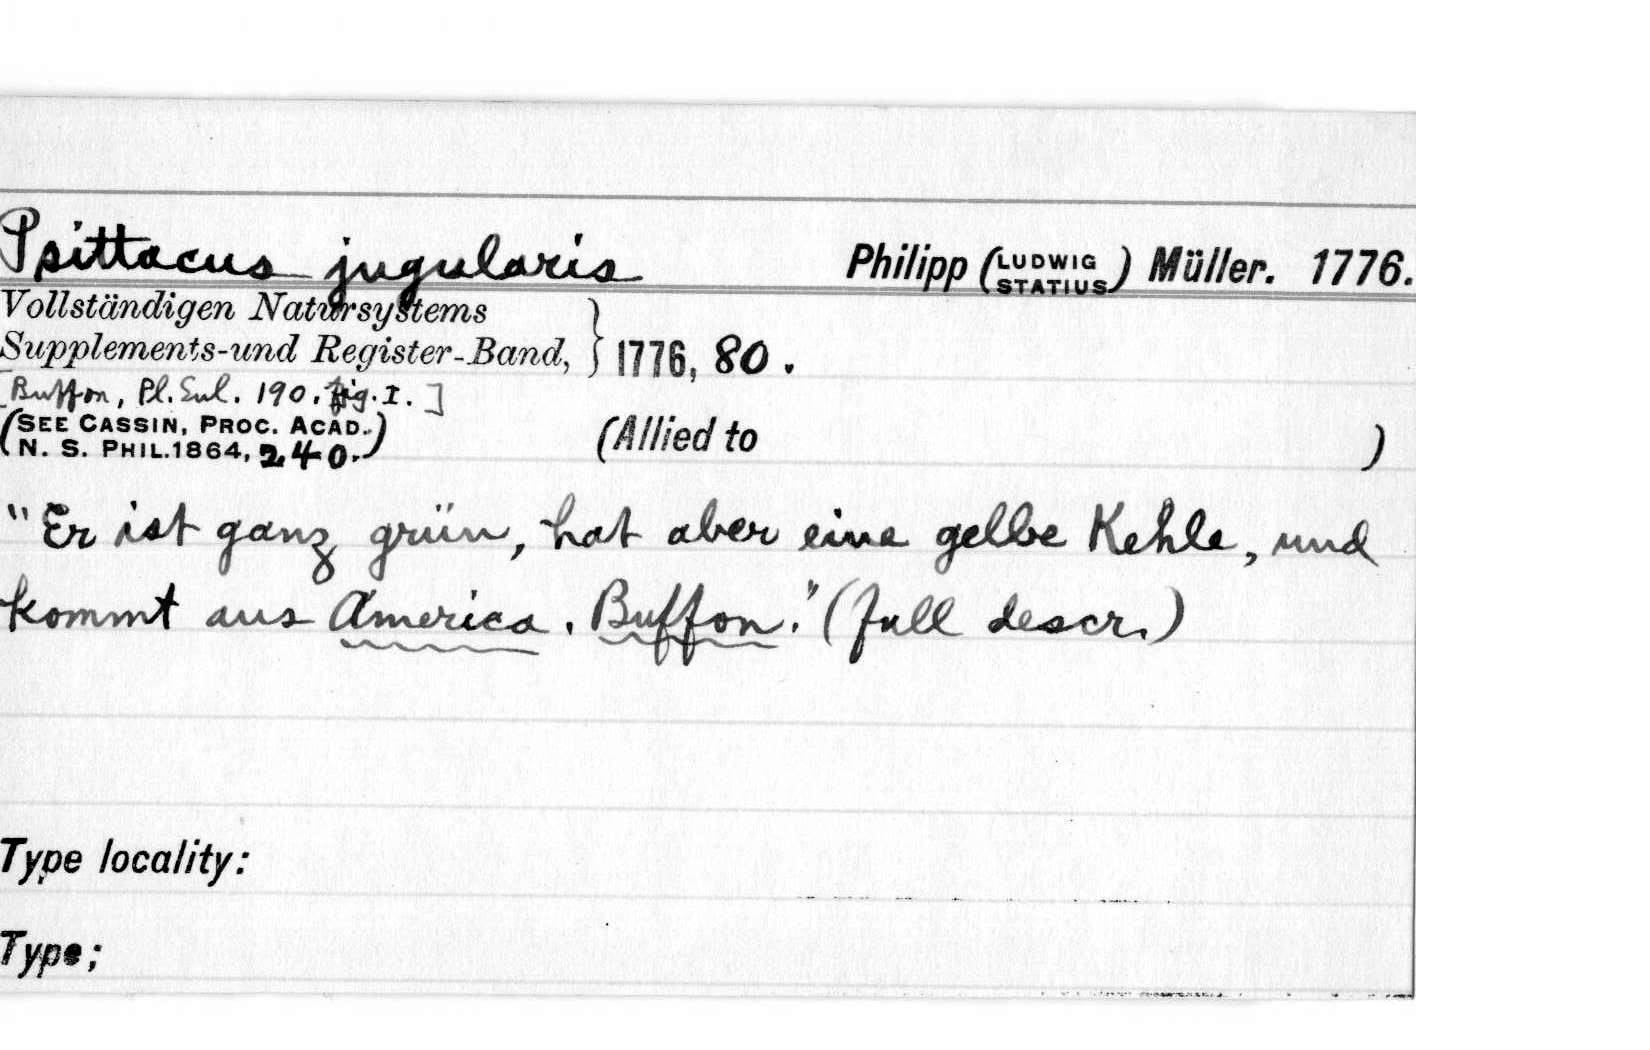 Psittacus jugularis Philipp (LUDWIG STATIUS) Müller. 1776.
Vollständigen Natursystems
Supplements-und Register-Band, } 1776, 80.
[Buffon, Pl. Enl. 190. fig. I.]
(SEE CASSIN, PROC. ACAD.
N. S. PHIL. 1864, 240.) (Allied to )
"Er ist ganz grün, hat aber eine gelbe Kehle, und
kommt aus America. Buffon." (full descr.)
Type locality:
Type;